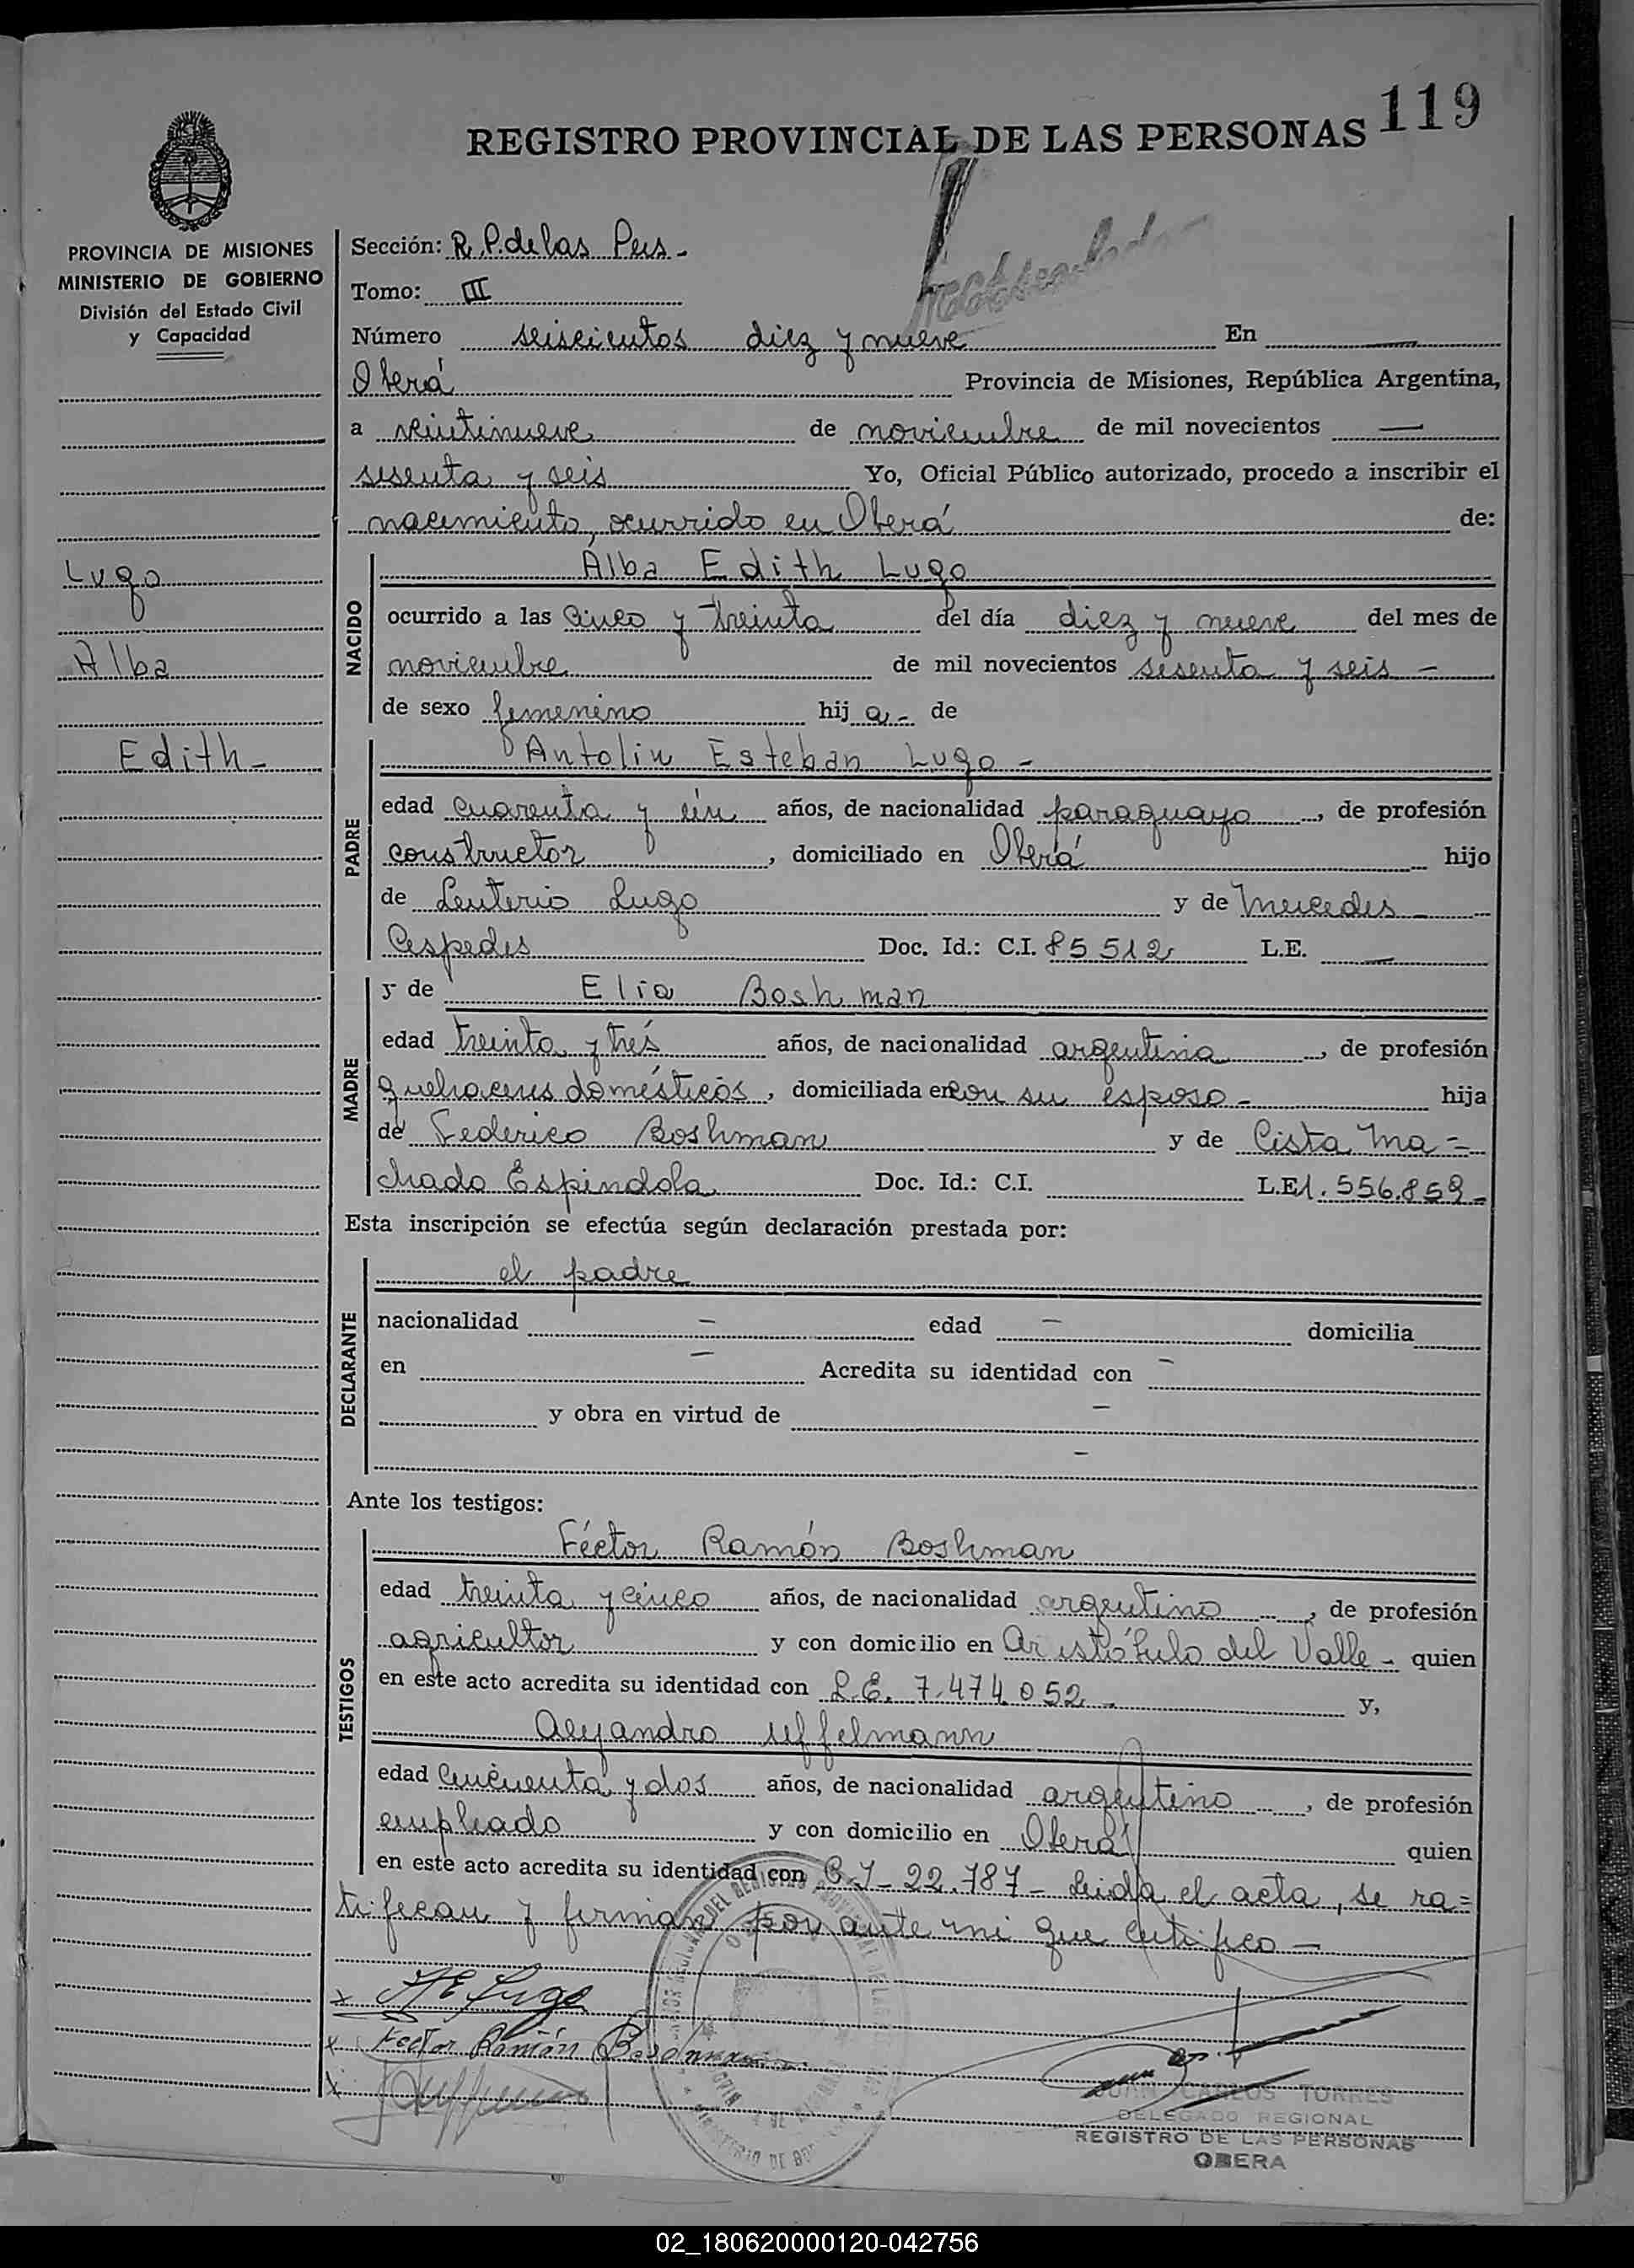 119
REGISTRO PROVINCIAL DE LAS PERSONAS
PROVINCIA DE MISIONES
MINISTERIO DE GOBIERNO
División del Estado Civil
y Capacidad
Lugo
Alba
Edith -
Sección: R. P. de las Pers -
Tomo: III
Número seiscientos diez y nueve En —
Oberá Provincia de Misiones, República Argentina,
a veintinueve de noviembre de mil novecientos —
sesenta y seis Yo, Oficial Público autorizado, procedo a inscribir el
nacimiento, ocurrido en Oberá de:
NACIDO
Alba Edith Lugo
ocurrido a las cinco y treinta del día diez y nueve del mes de
noviembre de mil novecientos sesenta y seis -
de sexo femenino hij a - de
PADRE
Antolin Esteban Lugo -
edad cuarenta y ún años, de nacionalidad paraguayo, de profesión
constructor, domiciliado en Oberá hijo
de Leuterio Lugo y de Mercedes
Cespedes Doc. Id.: C.I. 85512 L.E. —
MADRE
y de Elia Boshman
edad treinta y trés años, de nacionalidad argentina, de profesión
quehaceres domésticos, domiciliada en con su esposo - hija
de Federico Boshman y de Cista Ma =
chado Espindola Doc. Id.: C.I. L.E. 1.556.859 -
Esta inscripción se efectúa según declaración prestada por:
DECLARANTE
el padre
nacionalidad — edad — domicilia
en — Acredita su identidad con —
y obra en virtud de —
—
Ante los testigos:
TESTIGOS
Féctor Ramón Boshman
edad treinta y cinco años, de nacionalidad argentino, de profesión
agricultor y con domicilio en Aristóbulo del Valle - quien
en este acto acredita su identidad con L.E. 7.474.052 - y,
Alejandro Uffelmann
edad cincuenta y dos años, de nacionalidad argentino, de profesión
empleado y con domicilio en Oberá quien
en este acto acredita su identidad con C I - 22.787 - Leida el acta, se ra =
tifican y firman por ante mi que certifico -
x A E Lugo
x Fector Ramón
x
JUAN CARLOS TORRES
DELEGADO REGIONAL
REGISTRO DE LAS PERSONAS
OBERA
02_180620000120-042756